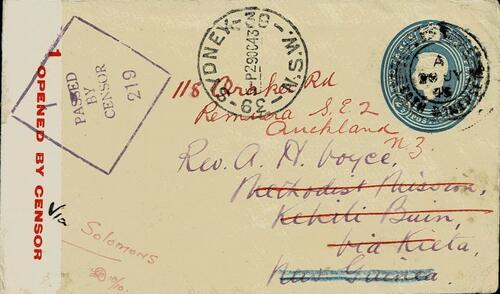 1 OPENED BY CENSOR
PASSED
BY
CENSOR
219
SYDNEY
N.S.W.
39
A
JY
118 Arney Rd
Remuera S.E.2
Auckland
N.Z.
Rev. A. H. Voyce,
Methodist Mission,
Kehili Buin,
Via Kieta,
New Guinea.
Via
Solomons